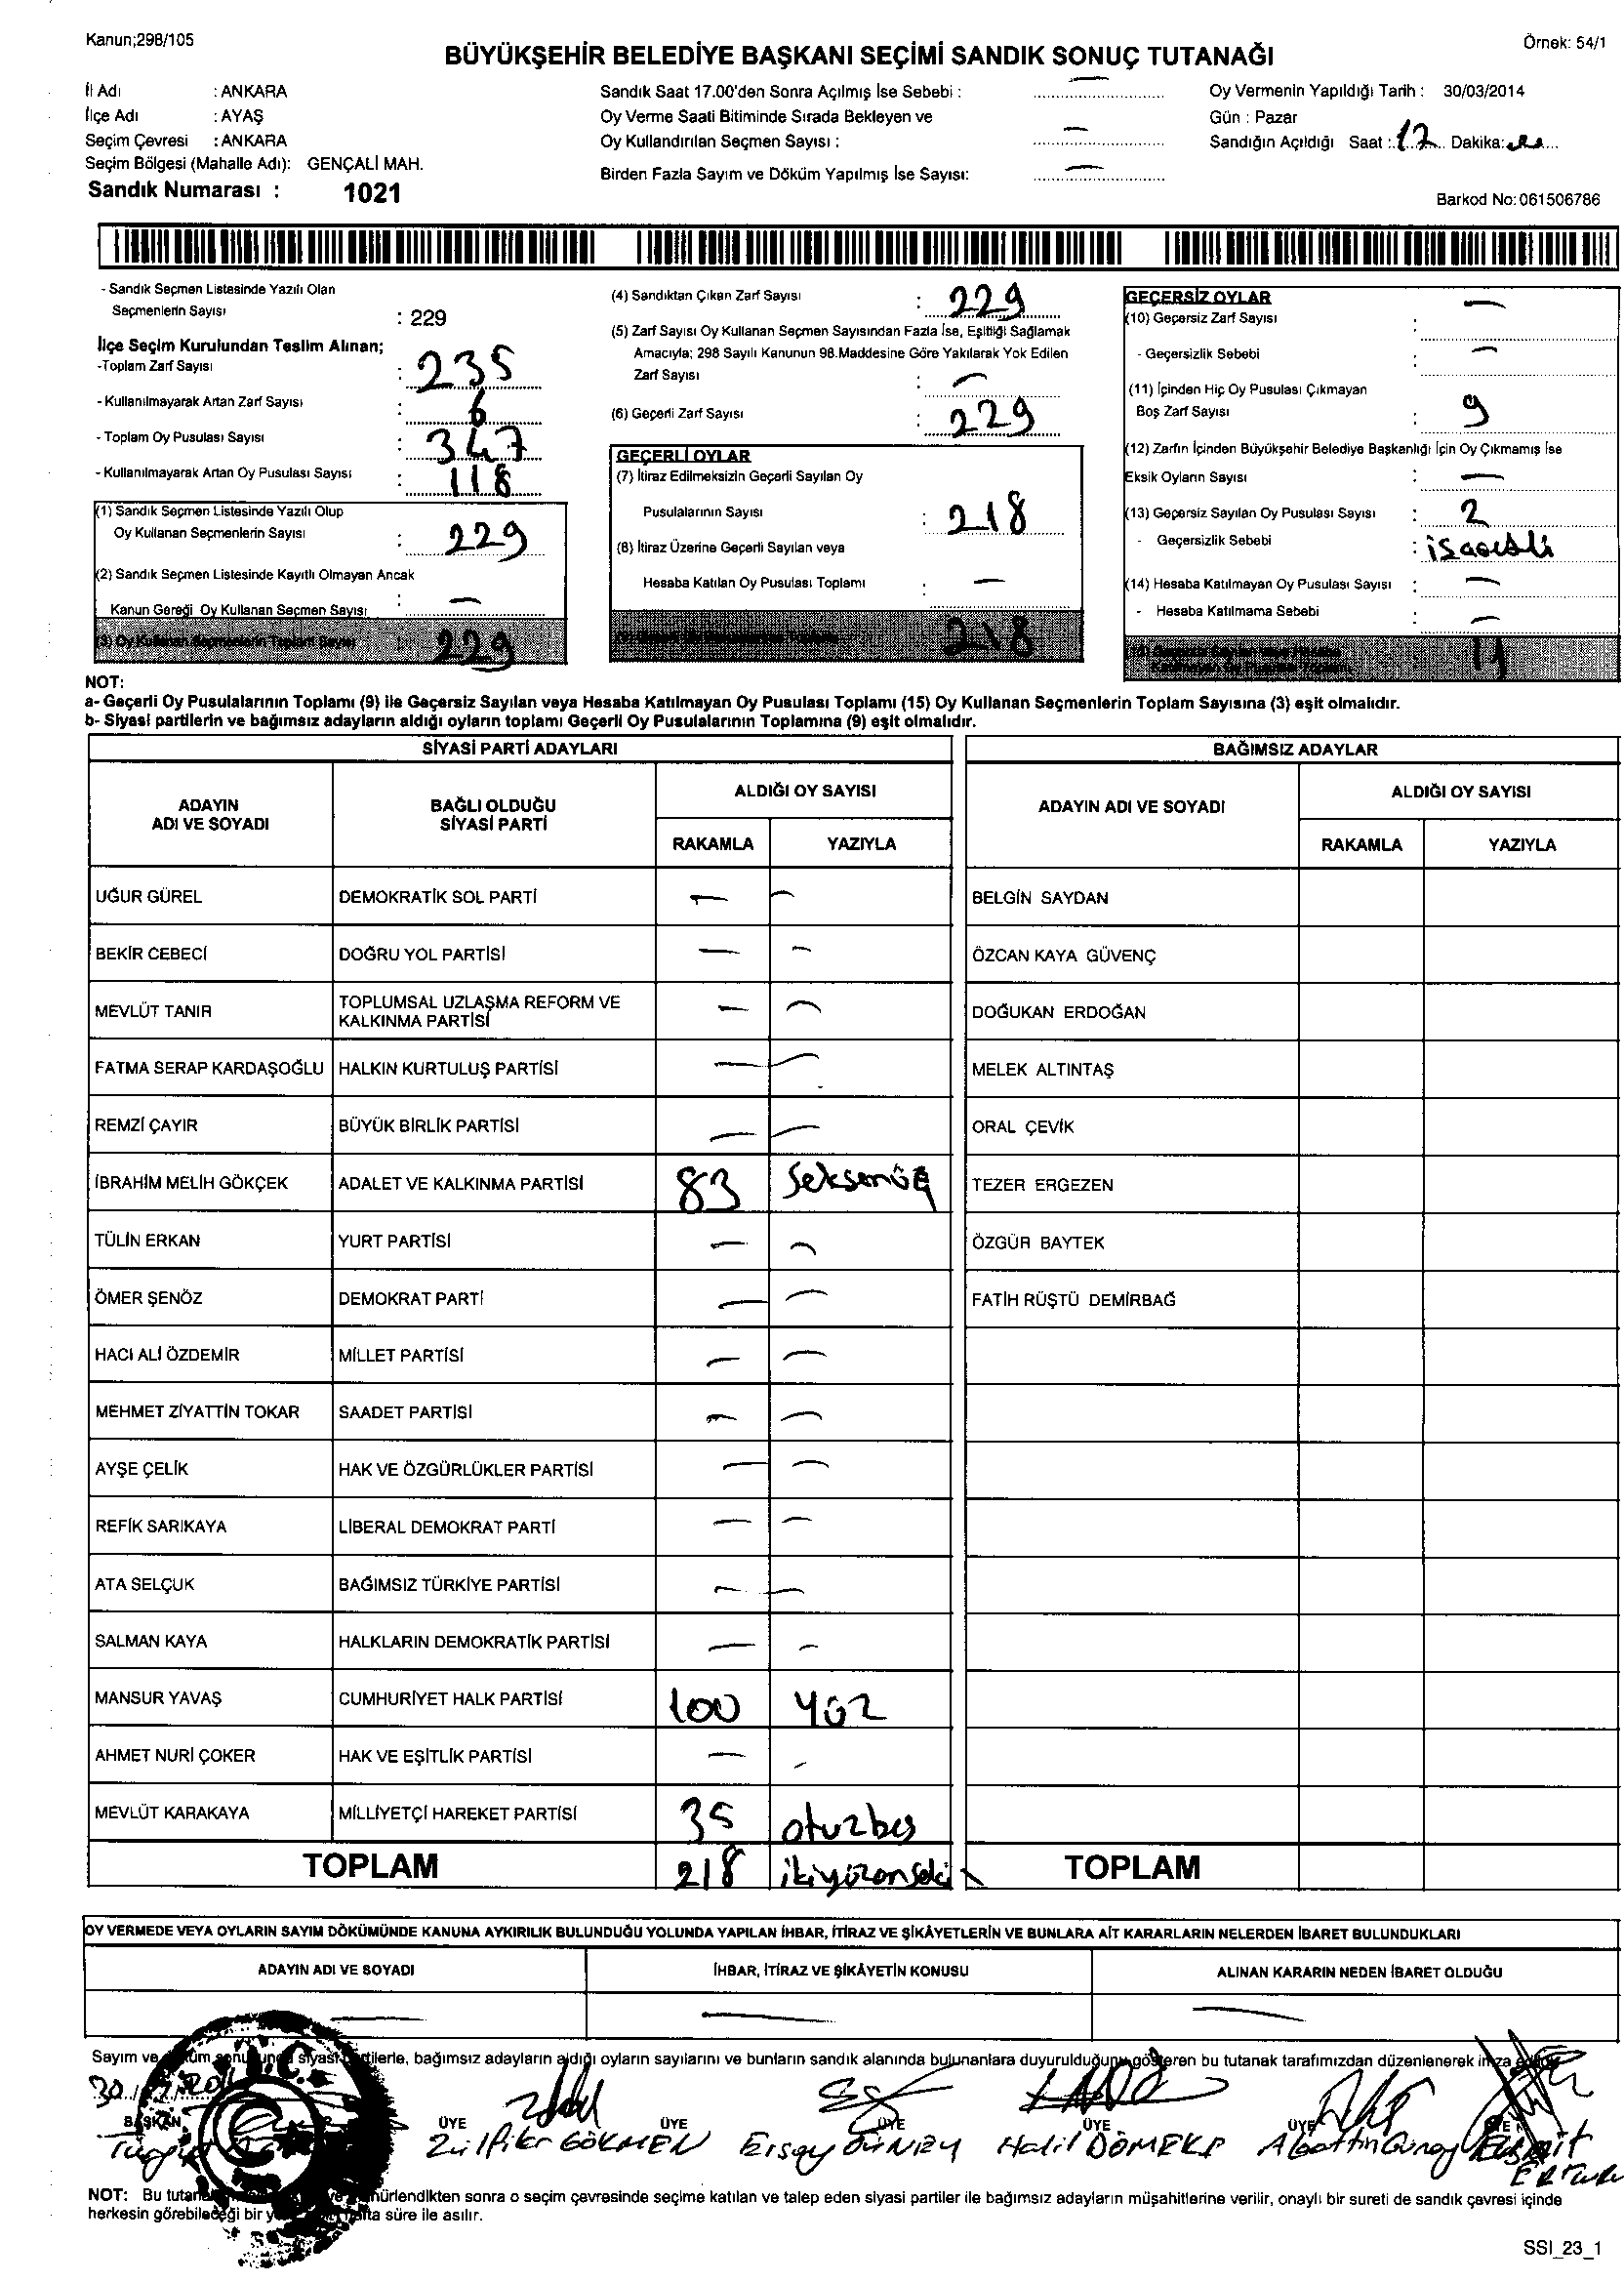 Kanun;298/105
Örnek: 54/1
BÜYÜKŞEHİR BELEDİYE BAŞKANI SEÇİMİ SANDIK SONUÇ TUTANAĞI
İl Adı : ANKARA
İlçe Adı : AYAŞ
Seçim Çevresi : ANKARA
Seçim Bölgesi (Mahalle Adı): GENÇALİ MAH.
Sandık Numarası : 1021
Sandık Saat 17.00'den Sonra Açılmış İse Sebebi : —
Oy Verme Saati Bitiminde Sırada Bekleyen ve
Oy Kullandırılan Seçmen Sayısı : —
Birden Fazla Sayım ve Döküm Yapılmış İse Sayısı: —
Oy Vermenin Yapıldığı Tarih : 30/03/2014
Gün : Pazar
Sandığın Açıldığı Saat : 17 Dakika:
Barkod No:061506786
- Sandık Seçmen Listesinde Yazılı Olan
Seçmenlerin Sayısı : 229
İlçe Seçim Kurulundan Teslim Alınan;
-Toplam Zarf Sayısı : 235
- Kullanılmayarak Artan Zarf Sayısı : 6
- Toplam Oy Pusulası Sayısı : 347
- Kullanılmayarak Artan Oy Pusulası Sayısı : 118
(1) Sandık Seçmen Listesinde Yazılı Olup
Oy Kullanan Seçmenlerin Sayısı : 229
(2) Sandık Seçmen Listesinde Kayıtlı Olmayan Ancak
Kanun Gereği Oy Kullanan Seçmen Sayısı : —
(3) Oy Kullanan Seçmenlerin Toplam Sayısı : 229
(4) Sandıktan Çıkan Zarf Sayısı : 229
(5) Zarf Sayısı Oy Kullanan Seçmen Sayısından Fazla İse, Eşitliği Sağlamak
Amacıyla; 298 Sayılı Kanunun 98.Maddesine Göre Yakılarak Yok Edilen
Zarf Sayısı : —
(6) Geçerli Zarf Sayısı : 229
GEÇERLİ OYLAR
(7) İtiraz Edilmeksizin Geçerli Sayılan Oy
Pusulalarının Sayısı : 218
(8) İtiraz Üzerine Geçerli Sayılan veya
Hesaba Katılan Oy Pusulası Toplamı : —
218
GEÇERSİZ OYLAR
(10) Geçersiz Zarf Sayısı : —
- Geçersizlik Sebebi : —
(11) İçinden Hiç Oy Pusulası Çıkmayan
Boş Zarf Sayısı : 9
(12) Zarfın İçinden Büyükşehir Belediye Başkanlığı İçin Oy Çıkmamış İse
Eksik Oyların Sayısı : —
(13) Geçersiz Sayılan Oy Pusulası Sayısı : 2
- Geçersizlik Sebebi : isaretli
(14) Hesaba Katılmayan Oy Pusulası Sayısı : —
- Hesaba Katılmama Sebebi : —
11
NOT:
a- Geçerli Oy Pusulalarının Toplamı (9) ile Geçersiz Sayılan veya Hesaba Katılmayan Oy Pusulası Toplamı (15) Oy Kullanan Seçmenlerin Toplam Sayısına (3) eşit olmalıdır.
b- Siyasi partilerin ve bağımsız adayların aldığı oyların toplamı Geçerli Oy Pusulalarının Toplamına (9) eşit olmalıdır.
SİYASİ PARTİ ADAYLARI BAĞIMSIZ ADAYLAR
ADAYIN ADI VE SOYADI BAĞLI OLDUĞU SİYASİ PARTİ ALDIĞI OY SAYISI ADAYIN ADI VE SOYADI ALDIĞI OY SAYISI
RAKAMLA YAZIYLA RAKAMLA YAZIYLA
UĞUR GÜREL DEMOKRATİK SOL PARTİ — — BELGİN SAYDAN
BEKİR CEBECİ DOĞRU YOL PARTİSİ — — ÖZCAN KAYA GÜVENÇ
MEVLÜT TANIR TOPLUMSAL UZLAŞMA REFORM VE KALKINMA PARTİSİ — — DOĞUKAN ERDOĞAN
FATMA SERAP KARDAŞOĞLU HALKIN KURTULUŞ PARTİSİ — — MELEK ALTINTAŞ
REMZİ ÇAYIR BÜYÜK BİRLİK PARTİSİ — — ORAL ÇEVİK
İBRAHİM MELİH GÖKÇEK ADALET VE KALKINMA PARTİSİ 83 Seksenüç TEZER ERGEZEN
TÜLİN ERKAN YURT PARTİSİ — — ÖZGÜR BAYTEK
ÖMER ŞENÖZ DEMOKRAT PARTİ — — FATİH RÜŞTÜ DEMİRBAĞ
HACI ALİ ÖZDEMİR MİLLET PARTİSİ — —
MEHMET ZİYATTİN TOKAR SAADET PARTİSİ — —
AYŞE ÇELİK HAK VE ÖZGÜRLÜKLER PARTİSİ — —
REFİK SARIKAYA LİBERAL DEMOKRAT PARTİ — —
ATA SELÇUK BAĞIMSIZ TÜRKİYE PARTİSİ — —
SALMAN KAYA HALKLARIN DEMOKRATİK PARTİSİ — —
MANSUR YAVAŞ CUMHURİYET HALK PARTİSİ 100 yüz
AHMET NURİ ÇOKER HAK VE EŞİTLİK PARTİSİ — —
MEVLÜT KARAKAYA MİLLİYETÇİ HAREKET PARTİSİ 35 otuzbeş
TOPLAM 218 ikiyüzonseki TOPLAM
OY VERMEDE VEYA OYLARIN SAYIM DÖKÜMÜNDE KANUNA AYKIRILIK BULUNDUĞU YOLUNDA YAPILAN İHBAR, İTİRAZ VE ŞİKÂYETLERİN VE BUNLARA AİT KARARLARIN NELERDEN İBARET BULUNDUKLARI
ADAYIN ADI VE SOYADI İHBAR, İTİRAZ VE ŞİKÂYETİN KONUSU ALINAN KARARIN NEDEN İBARET OLDUĞU
— — —
Sayım ve siyasi bağımsız adayların aldığı oyların sayılarını ve bunların sandık alanında bulunanlara duyurulduğunu gösteren bu tutanak tarafımızdan düzenlenerek imza
BAŞKAN ÜYE ÜYE ÜYE ÜYE ÜYE
Zülfiker GÖKMEN Ersoy GÜNEY Halil Alaattin Günay
NOT: Bu sonra o seçim çevresinde seçime katılan ve talep eden siyasi partiler ile bağımsız adayların müşahitlerine verilir, onaylı bir sureti de sandık çevresi içinde
herkesin görebileceği bir hafta süre ile asılır.
SSI_23_1